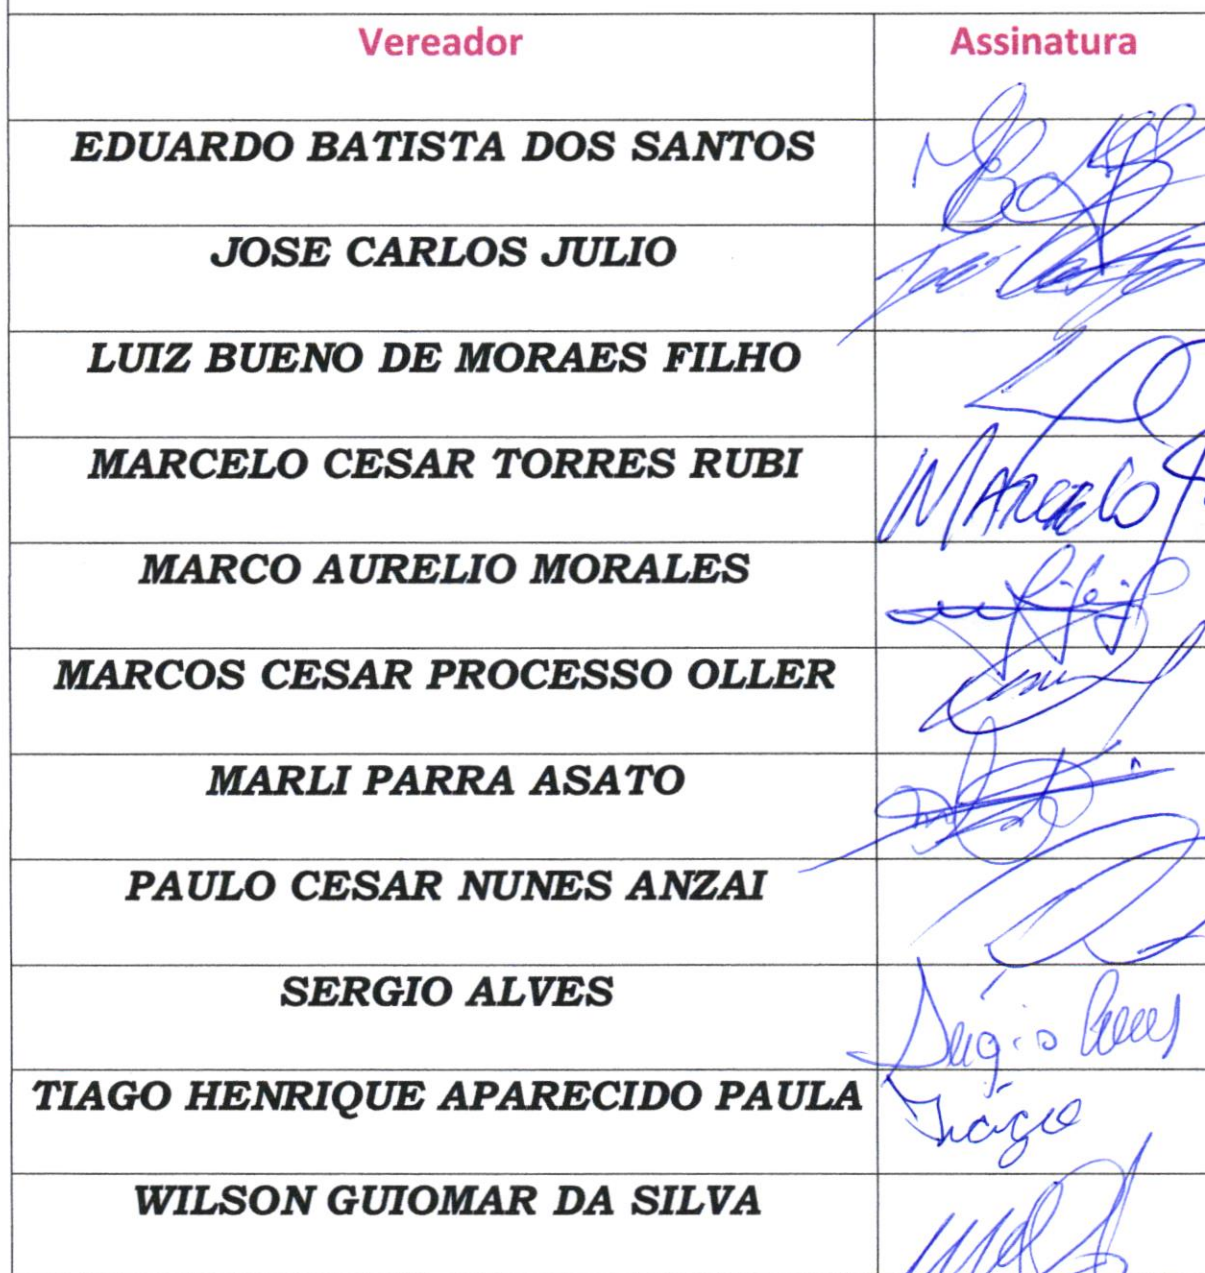 Vereador Assinatura
EDUARDO BATISTA DOS SANTOS
JOSE CARLOS JULIO
LUIZ BUENO DE MORAES FILHO
MARCELO CESAR TORRES RUBI Marcelo
MARCO AURELIO MORALES
MARCOS CESAR PROCESSO OLLER
MARLI PARRA ASATO
PAULO CESAR NUNES ANZAI
SERGIO ALVES Sérgio Alves
TIAGO HENRIQUE APARECIDO PAULA Tiago
WILSON GUIOMAR DA SILVA